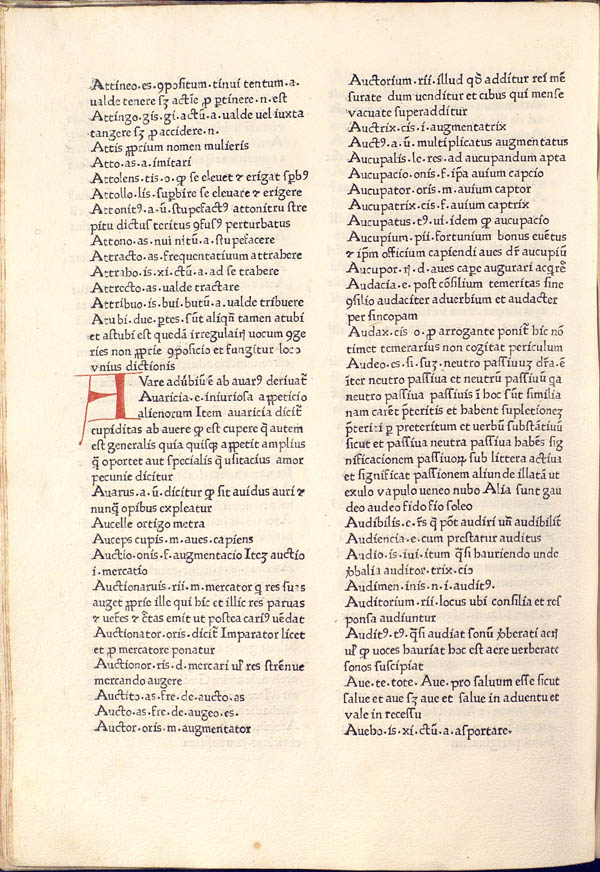 Attineo·es·ꝯpositum·tinui tentum·a·
ualde tenere sꝫ actiē ꝓ ꝑtinere·n·est
Attingo·gis·gi·actū·a·ualde uel iuxta
tangere sꝫ ꝓ accidere·n·
Attis ꝓprium nomen mulieris
Atto·as·a·imitari
Attolens·tis·o·ꝙ se eleuet ⁊ erigat suꝑbꝰ
Attollo·lis·suꝑbire se eleuare ⁊ erigere
Attonitꝰ·a·ū·stupefactꝰ attonitru stre
pitu dictus territus ꝯfusꝰ perturbatus
Attono·as·nui nitū·a·stupefacere
Attracto·as·frequentatiuum attrahere
Attraho·is·xi·ctū·a·ad se trahere
Attrecto·as·ualde tractare
Attribuo·is·bui·butū·a·ualde tribuere
Atubi·due·ꝑtes·sūt aliqn̄ tamen atubi
et astubi est quedā irregulariꝝ uocum ꝯge
ries non ꝓprie ꝯposicio et fungitur loco
vnius dictionis
AVare aduerbiū·ē ab auarꝰ deriuat̄
Auaricia·e·iniuriosa appeticio
alienorum Item auaricia dicit̄
cupiditas ab auere ꝙ est cupere q̄ autem
est generalis quia quisqꝫ appetit amplius
q̄ oportet aut specialis q̄ usitacius amor
pecunie dicitur
Auarus·a·ū·dicitur ꝙ sit auidus auri ⁊
nunq̄ opibus expleatur
Aucelle ortigo metra
Auceps cupis·m·aues·capiens
Auctio·onis·f·augmentacio Iteꝫ auctio
i·mercatio
Auctionarius·rii·m·mercator q̄ res suas
auget ꝓprie ille qui hic et illic res paruas
⁊ uetēs ⁊ cētas emit ut postea cariꝰ uēdat
Auctionator·oris·dicit̄ Imparator licet
et ꝓ mercatore ponatur
Auctionor·ris·d·mercari ul̓ res strenue
mercando augere
Auctito·as·fre·de·aucto·as
Aucto·as·fre·de·augeo·es·
Auctor·oris·m·augmentator
Auctorium·rii·illud qd̄ additur rei mē
surate dum uenditur et cibus qui mense
vacuate superadditur
Auctrix·cis·i·augmentatrix
Auctꝰ·a·ū·multiplicatus augmentatus
Aucupalis·le·res·ad aucupandum apta
Aucupacio·onis·f·ip̄a auium capcio
Aucupator·oris·m·auium captor
Aucupatrix·cis·f·auium captrix
Aucupatus·tꝰ·ui·idem ꝙ aucupacio
Aucupium·pii·fortunium bonus euētus
⁊ ip̄m officium capiendi aues dr̄ aucupiū
Aucupor·ꝝ·d·aues cape augurari acqrē
Audacia·e·post cōsilium temeritas sine
ꝯsilio audaciter aduerbium et audacter
per sincopam
Audax·cis·o·ꝓ arrogante ponit̄ hic nō
timet temerarius non cogitat periculum
Audeo·es·si·suꝫ·neutro passiuuꝫ dr̄a·ē
iter neutro passiua et neutrū passiuū qa
neutro passiua passiuis ī hoc sūt similia
nam carēt p̄teritis et habent supletionez
p̄teriti ꝑ preteritum et uerbū substātiuū
sicut et passiua neutra passiua habēs sig
nificacionem passiuoꝝ sub littera actiua
et significat passionem aliunde illatā ut
exulo vapulo ueneo nubo Alia sunt gau
deo audeo fido fio soleo
Audibilis·e·rēs q̄ pōt audiri un̄ audibilit̄
Audiencia·e·cum prestatur auditus
Audio·is·iui·itum q̄si hauriendo unde
ꝟbalia auditor·trix·cio
Audimen·inis·n·i·auditꝰ·
Auditorium·rii·locus ubi consilia et res
ponsa audiuntur
Auditꝰ·tꝰ·q̄si audiat sonū ꝟberati aeris
ul̓ ꝙ uoces hauriat hoc est aere uerberato
sonos suscipiat
Aue·te·tote·Aue·pro saluum esse sicut
salue et aue sꝫ aue et salue in aduentu et
vale in recessu
Aueho·is·xi·ctū·a·asportare·